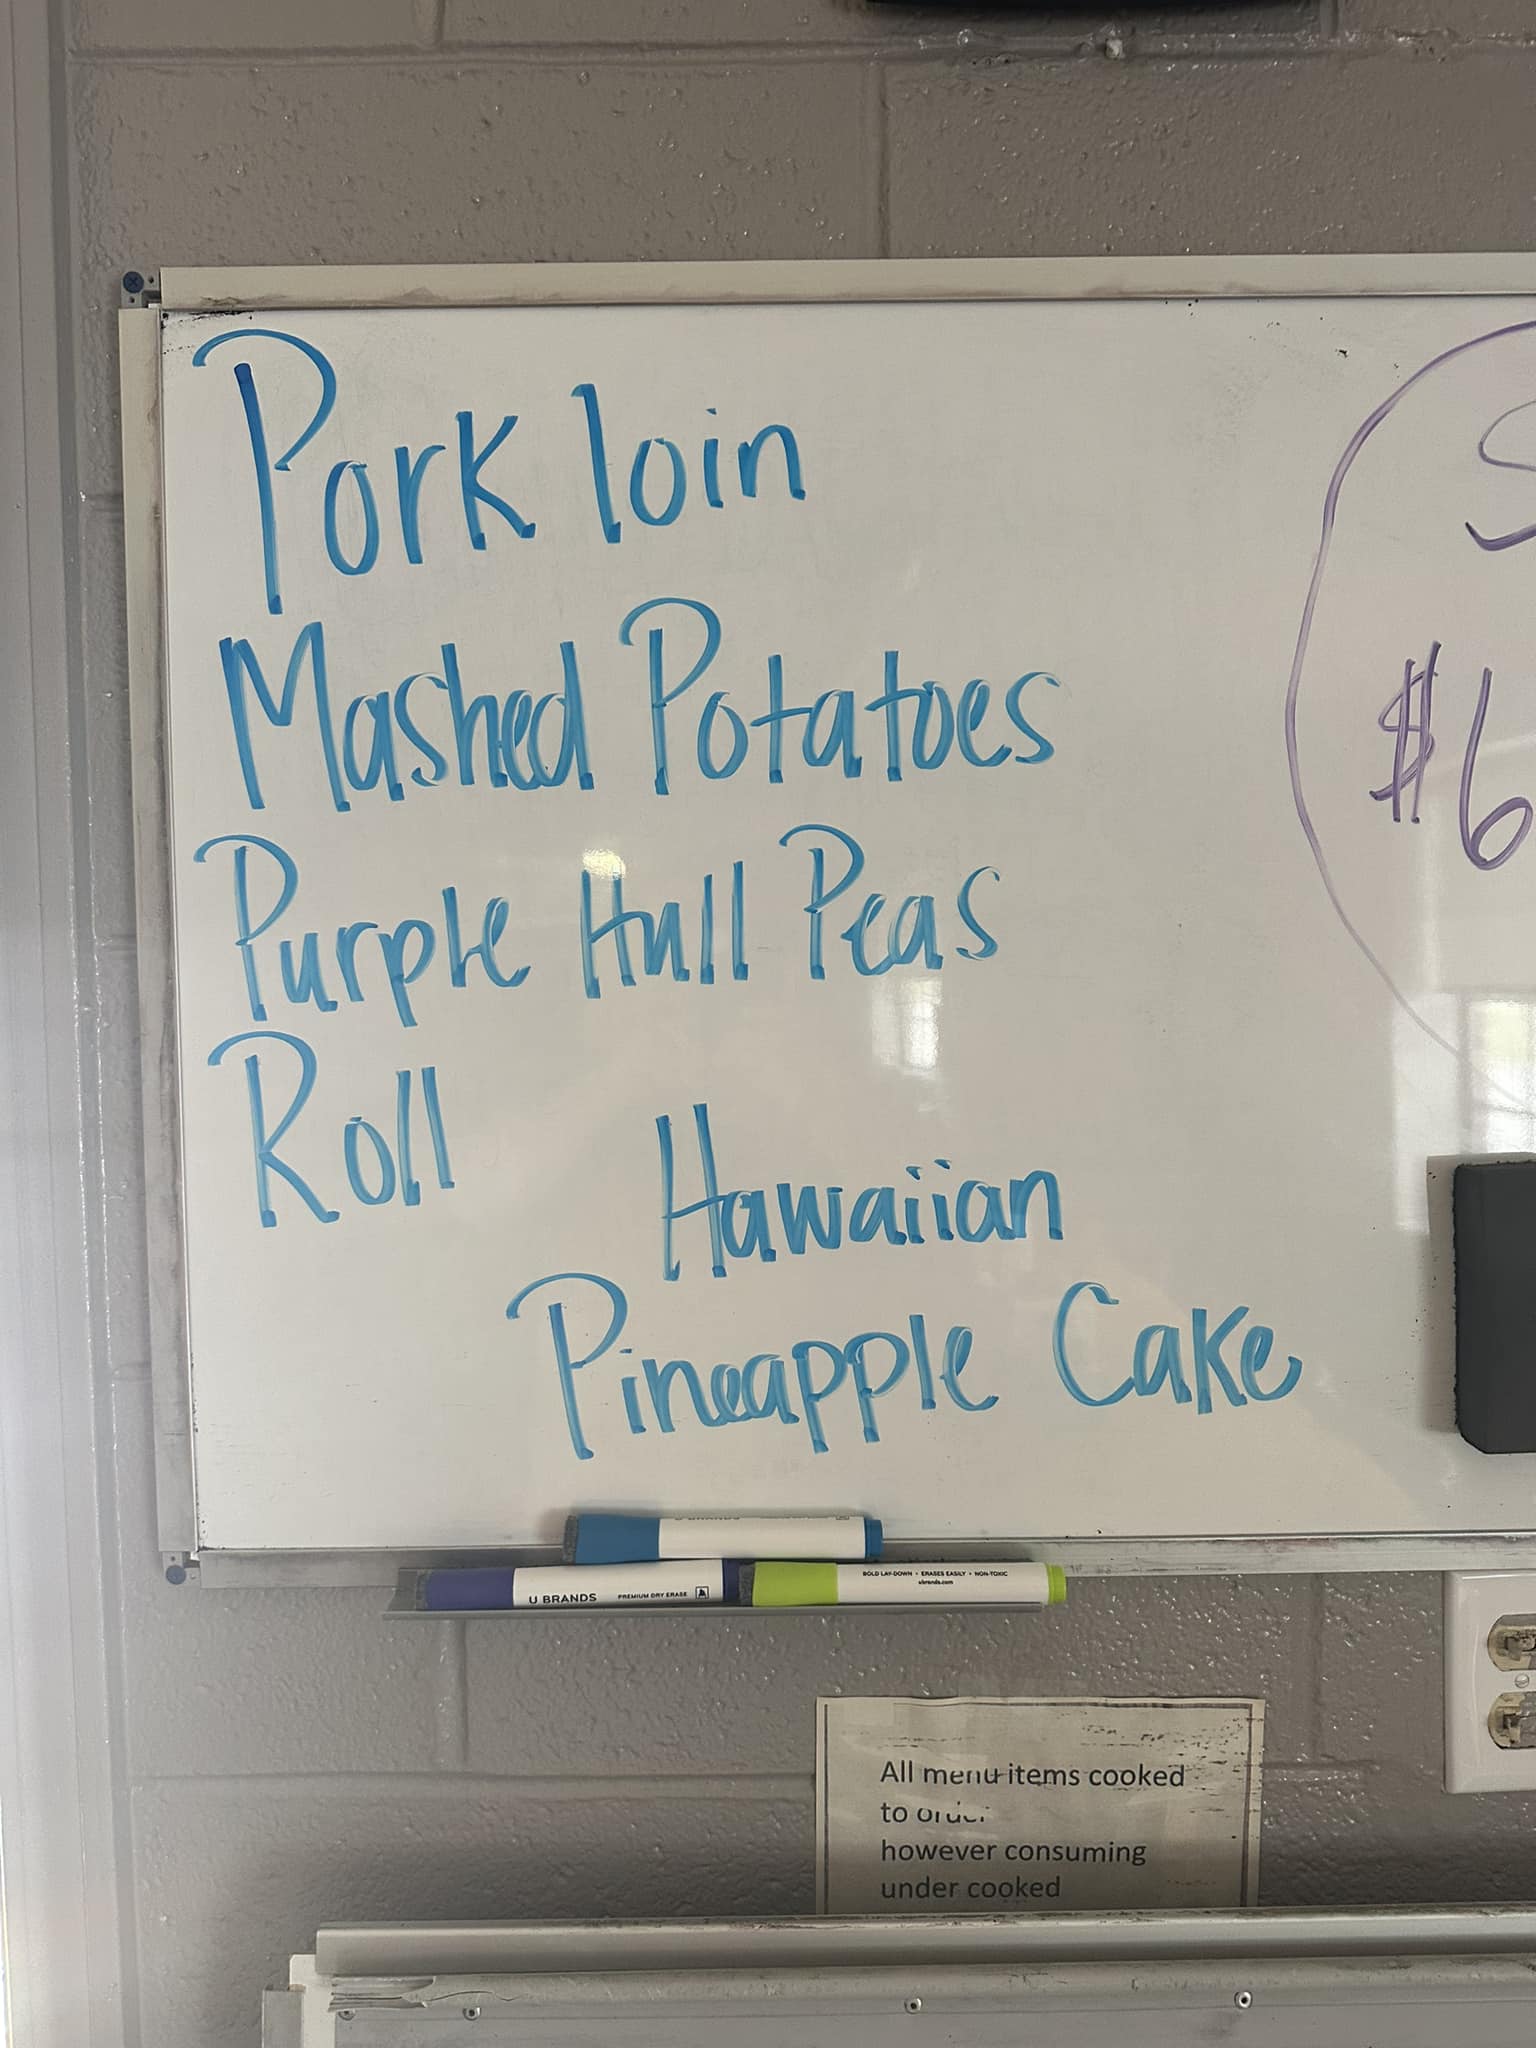 Pork loin
Mashed Potatoes
Purple Hull Peas
Roll
Hawaiian
Pineapple Cake
S
$6
U BRANDS
U BRANDS PREMIUM DRY ERASE
BOLD LAY-DOWN • ERASES EASILY • NON-TOXIC
ubrands.com
All menu items cooked
to order
however consuming
under cooked